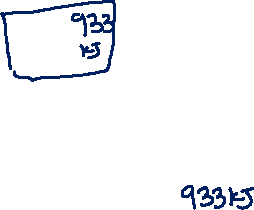 933
kJ
933kJ